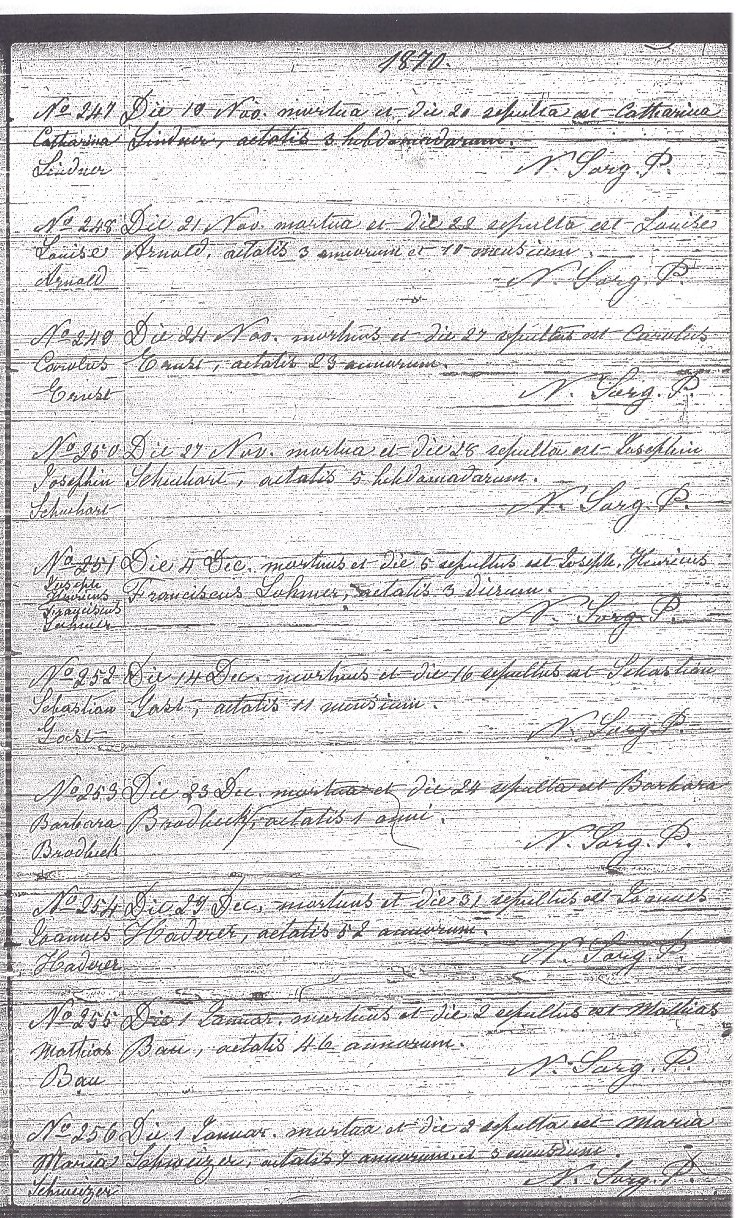 1870.
No 247 Die 19 Nov. mortua et die 20 sepulta est Catharina
Catharina Lindner, aetatis 3 hebdomadarum.
Lindner N. Sorg. P.
No 248 Die 21 Nov. mortua et die 22 sepulta est Louise
Louise Arnold, aetatis 3 annorum et 10 mensium.
Arnold N. Sorg. P.
No 249 Die 24 Nov. mortuus et die 27 sepultus est Carolus
Carolus Ernst, aetatis 23 annorum.
Ernst N. Sorg. P.
No 250 Die 27 Nov. mortua et die 28 sepulta est Josephin
Josephin Schuhart, aetatis 5 hebdomadarum.
Schuhart N. Sorg. P.
No 251 Die 4 Dec. mortuus et die 5 sepultus est Joseph. Henricus
Joseph Franciscus Lohmer, aetatis 3 dierum.
Henricus
Franciscus N. Sorg. P.
Lohmer
No 252 Die 14 Dec. mortuus et die 16 sepultus est Sebastian
Sebastian Gost, aetatis 11 mensium.
Gost N. Sorg. P.
No 253 Die 23 Dec. mortua et die 24 sepulta est Barbara
Barbara Brodbeck, aetatis 1 anni.
Brodbeck N. Sorg. P.
No 254 Die 29 Dec. mortuus et die 31 sepultus est Joannes
Joannes Haderer, aetatis 52 annorum.
Haderer N. Sorg. P.
No 255 Die 1 Januar. mortuus et die 2 sepultus est Mathias
Mathias Bau, aetatis 46 annorum.
Bau N. Sorg. P.
No 256 Die 1 Januar. mortua et die 2 sepulta est Maria
Maria Schweizer, aetatis 7 annorum et 3 mensium.
Schweizer N. Sorg. P.